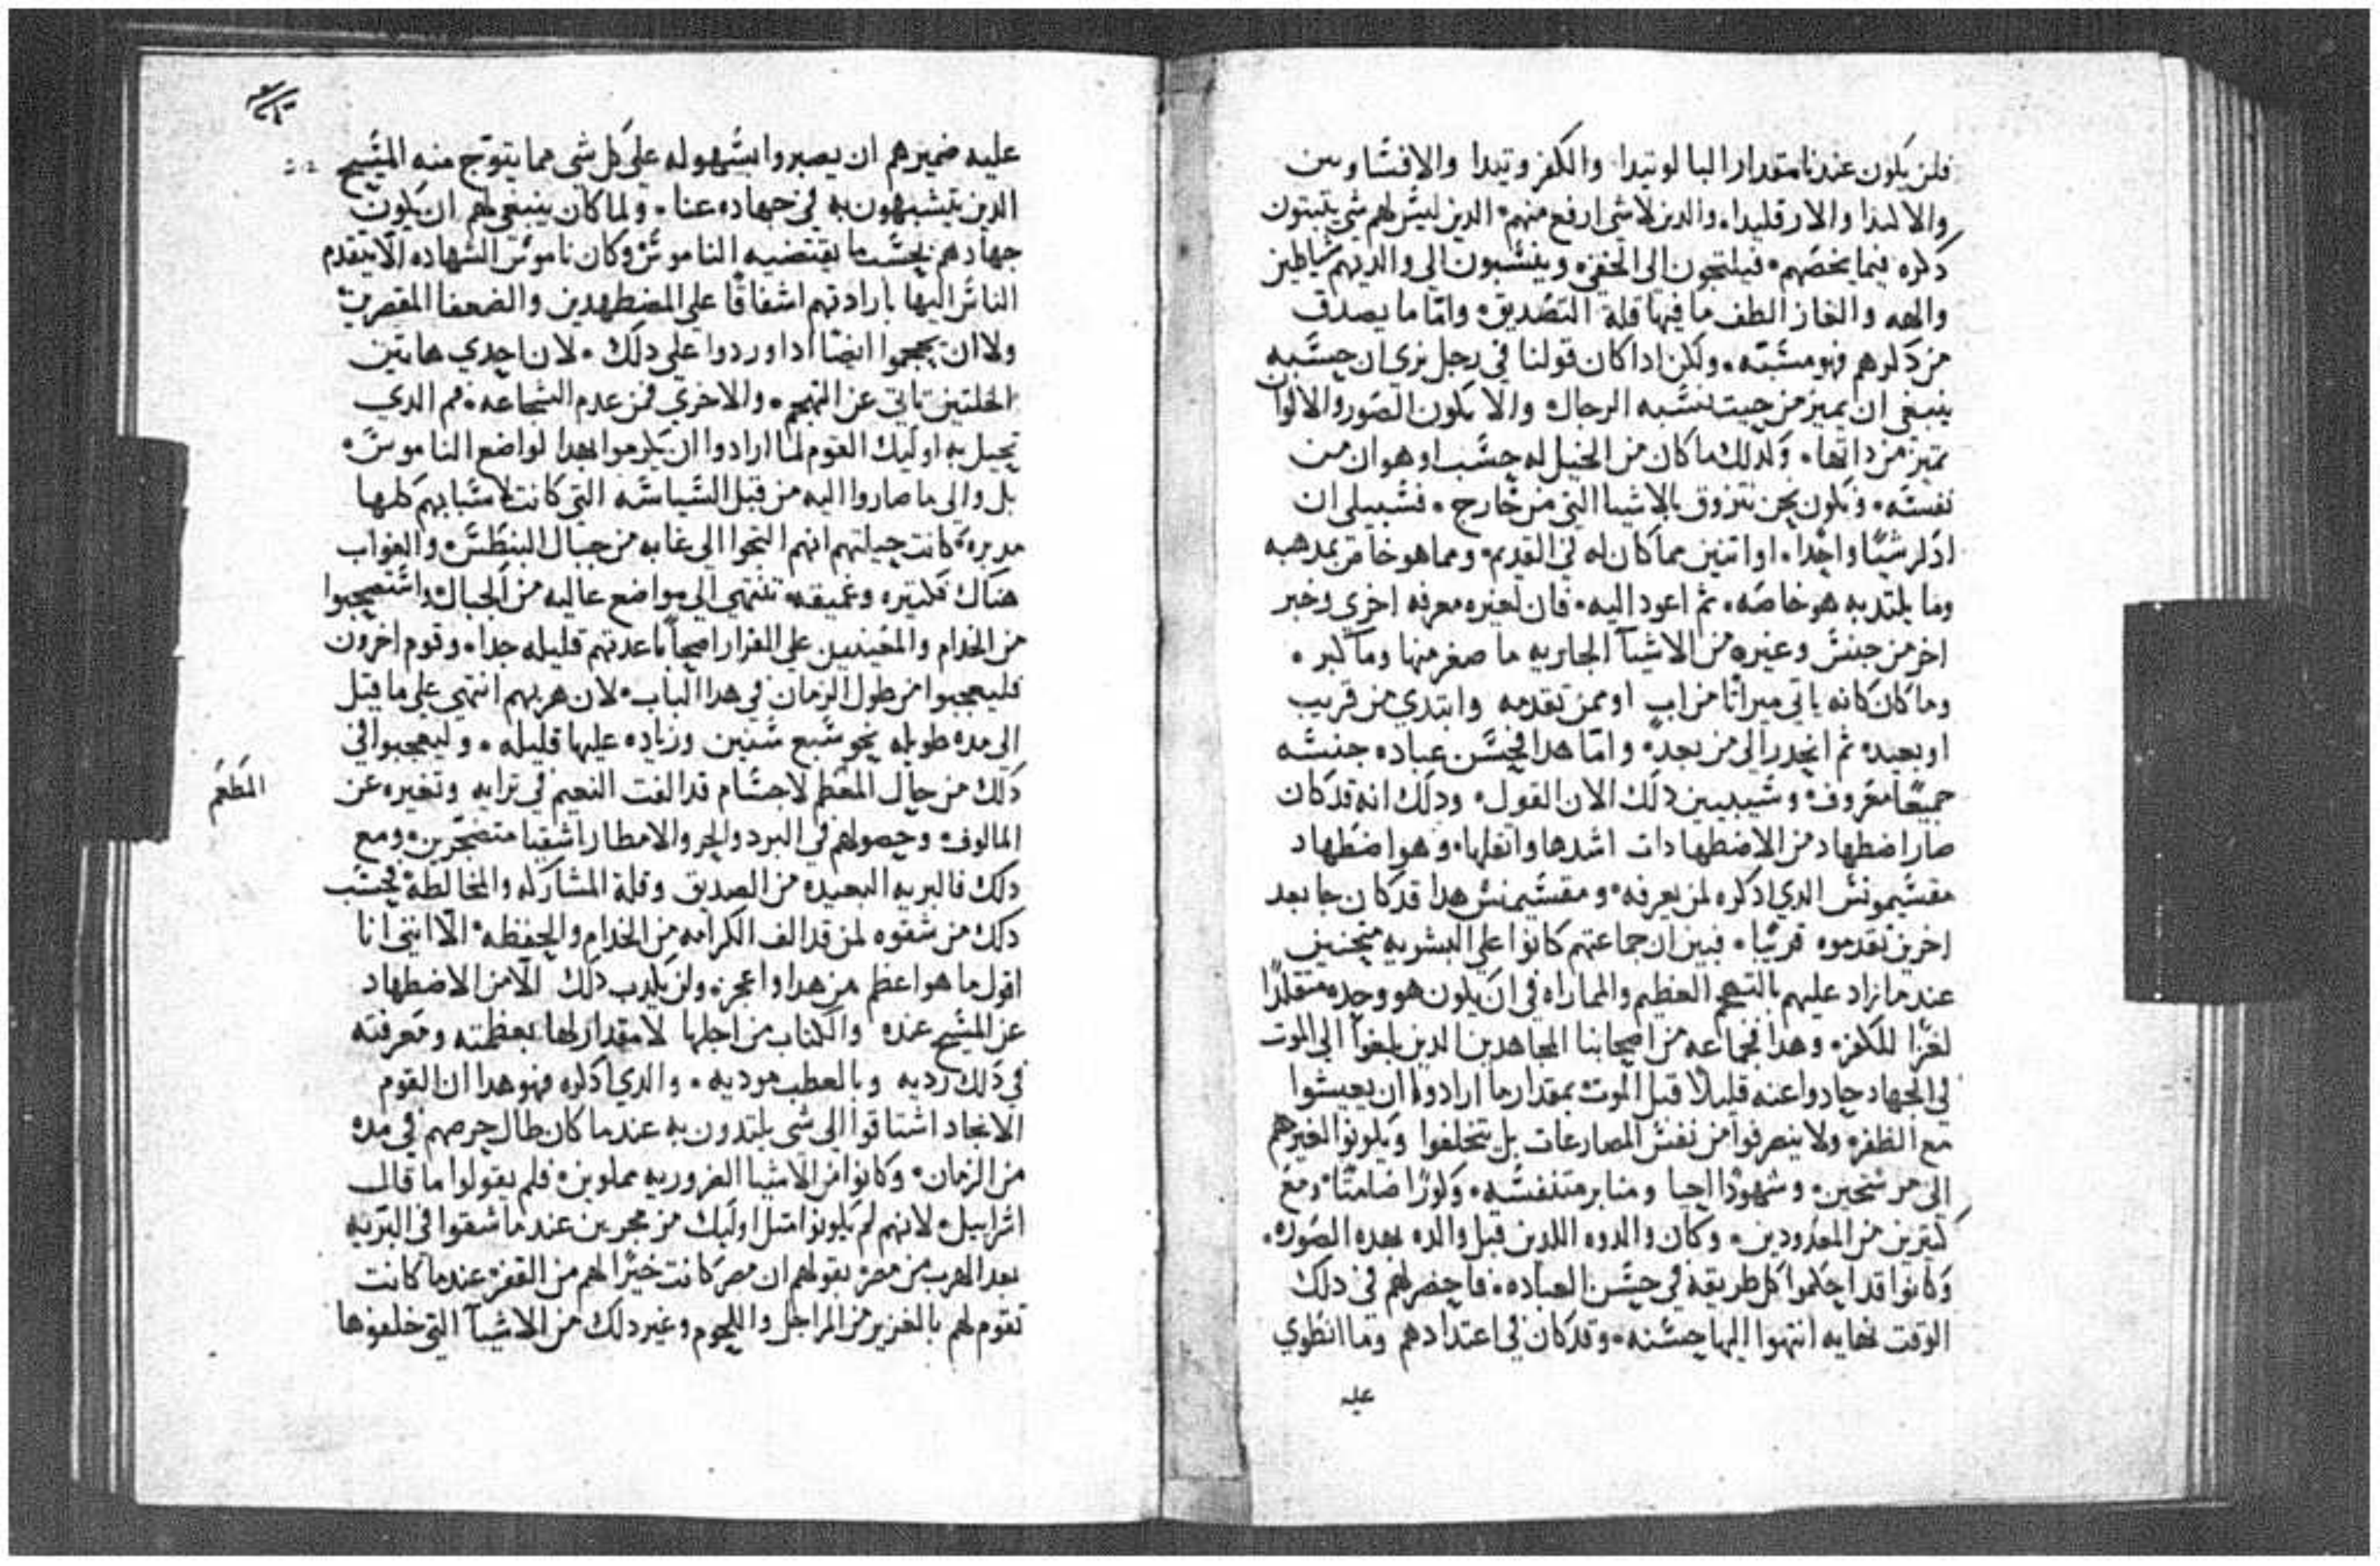 فلن يكون عندنا مقدار البالوتيدا والكفروتيدا والافشاوس
والالبدا والارقليدا والدين لاشي ارفع منهم الدين ليس لهم شي يثبتون
دكره فيما يخصهم فيلتجون الى الخفي وينسبون الى والديهم شاطين
والهه والغاز الطف ما فيها قلة التصديق واما ما يصدق
من دكرهم فهو مشبته ولكن ادا كان قولنا في رجل نرى ان حسبه
ينبغي ان يميز من حيت ننسبه الرجال والا يكون الصور والالوان
تميز من داتها ولدلك ما كان من الخيل له حسب او هوان من
نفسه ونكون نحن نتزوق بالاشيا التي من خارج فسبيلي ان
ادكر شيا واحدا او اتنين مما كان له في القديم ومما هو خاص بمدهبه
وما يلتد به هو خاصه ثم اعود اليه فان لغيره معرفه اخري وخبر
اخر من جنس وغيره من الاشيآ الجاريه ما صغر منها وما كبر
وما كان كانه ياتي ميراتا من اب او ممن تقدمه وابتدي من قريب
او بعيد ثم انحدر الى من بعده واما هدا فحسن عباده جنسه
جميعا معروف وسيبين دلك الان القول ودلك انه قد كان
صار اضطهاد من الاضطهادات اشدها واتقلها وهو اضطهاد
مقسيمونس الدي ادكره لمن يعرفه ومقسيمنس هدا قد كان جا بعد
اخرين تقدموه قريبا فبين ان جماعتهم كانوا على البشريه متحننين
عند ما زاد عليهم بالتهجم العظيم والمماراه في ان يكون هو وحده متقلدا
لعزا للكفر وهدا فجماعه من اصحابنا المجاهدين الدين بلغوا الى الموت
في الجهاد جادوا عنه قليلا قبل الموت بمقدار ما ارادوا ان يعيشوا
مع الظفره ولا ينصرفوا من نفس المصارعات بل يتخلفوا ويكونوا لغيرهم
الى مرشحين وشهودا احيا ومنابر متنفسه وكورا ضامتا ومع
كتيرين من المعدودين وكان والدوه اللدين قبل والده بهده الصوره
وكانوا قد احكموا كل طريقة في حسن العباده فاحضر لهم في دلك
الوقت نهايه انتهوا اليها حسنه وقد كان في اعتدادهم وما انطوي
عليه
عليه ضميرهم ان يصبروا بسهوله على كل شي مما يتوج منه المسيح
الدين يتشبهون به في جهاده عنا ولما كان ينبغي لهم ان يكون
جهادهم بحسب ما يقتضيه الناموس وكان ناموس الشهاده الا يتقدم
الناس اليها بارادتهم اشفاقا على المضطهدين والضعفا المقصرين
ولا ان يجمحوا ايضا ادا وردوا على دلك لان احدي هاتين
الخلتين تاتي عن التهجم والاخري فمن عدم الشجاعه فم الدي
تحيل به اوليك القوم لما ارادوا ان يكرموا بهدا لواضع الناموس
بل والى ما صاروا اليه من قبل السياسه التي كانت لاسبابهم كلها
مدبره كانت حيلتهم انهم التجوا الى غابه من جبال البنطس والغواب
هناك فكتيره وغميقه تنتهي الى مواضع عاليه من الجبال واستصحبوا
من الخدام والمعينين على الفرار اصحابا عدتهم قليله جدا وقوم اخرون
فليعجبوا من طول الزمان في هدا الباب لان هربهم انتهي على ما قيل
الى مده طويله نحو سبع سنين وزياده عليها قليله وليعجبوا في
دلك من حال المطعم لاجسام قد الفت النعيم في ترابيه وتغيره عن
المطعم
المالوف وحصولهم في البرد والحر والامطار اشقيا متضجرين ومع
دلك فالبريه البعيده من الصديق وقلة المشاركه والمخالطه فحسب
دلك من شقوه لمن قد الف الكرامه من الخدام والحفظه الا انني انا
اقول ما هو اعظم من هدا واعجز ولن يكدب دلك الا من الاضطهاد
عن المسيح عنده والكتاب من اجلها لا مقدار لها بعظمته ومعرفته
في دلك رديه وبالعطب موديه والدي ادكره فهو هدا ان القوم
الانجاد اشتاقوا الى شي يلتدون به عند ما كان طال حرصهم في مده
من الزمان وكانوا من الاشيا الضروريه مملوين فلم يقولوا ما قال
اسراييل لانهم لم يكونوا متل اوليك من محرين عند ما شقوا في البريه
بعد الهرب من مصر بقولهم ان مصر كانت خيرا لهم من القفر عند ما كانت
تقوم لهم بالغزير من المراجل واللحوم وغير دلك من الاشيآ التي خلفوها